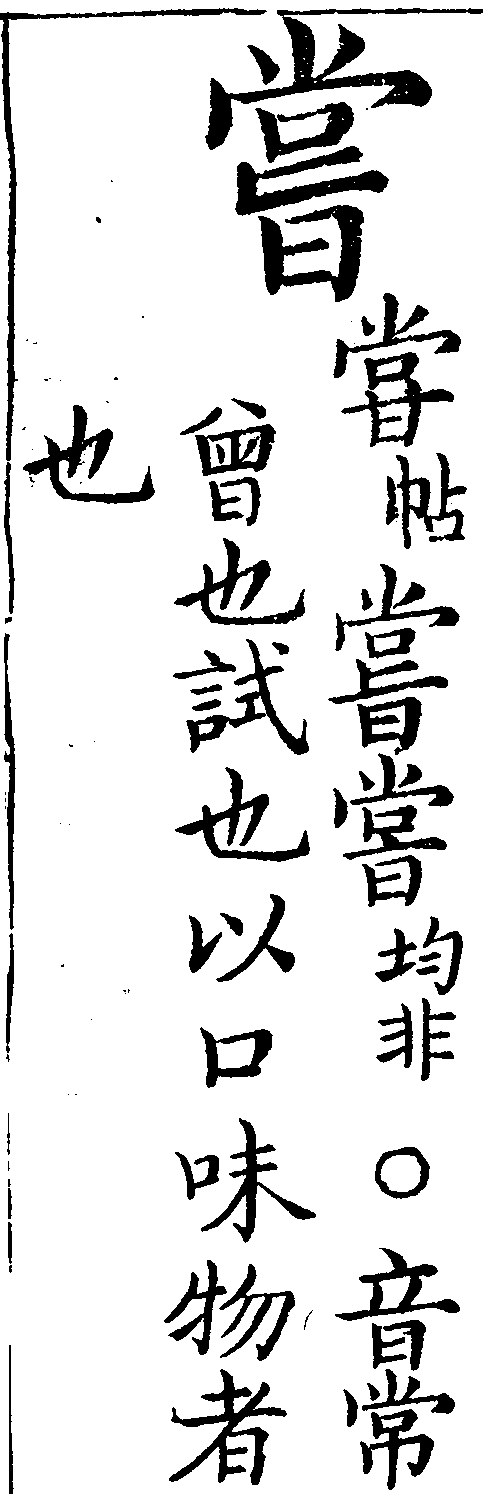 嘗
甞帖嘗嘗均非○音常
曾也試也以口味物者
也